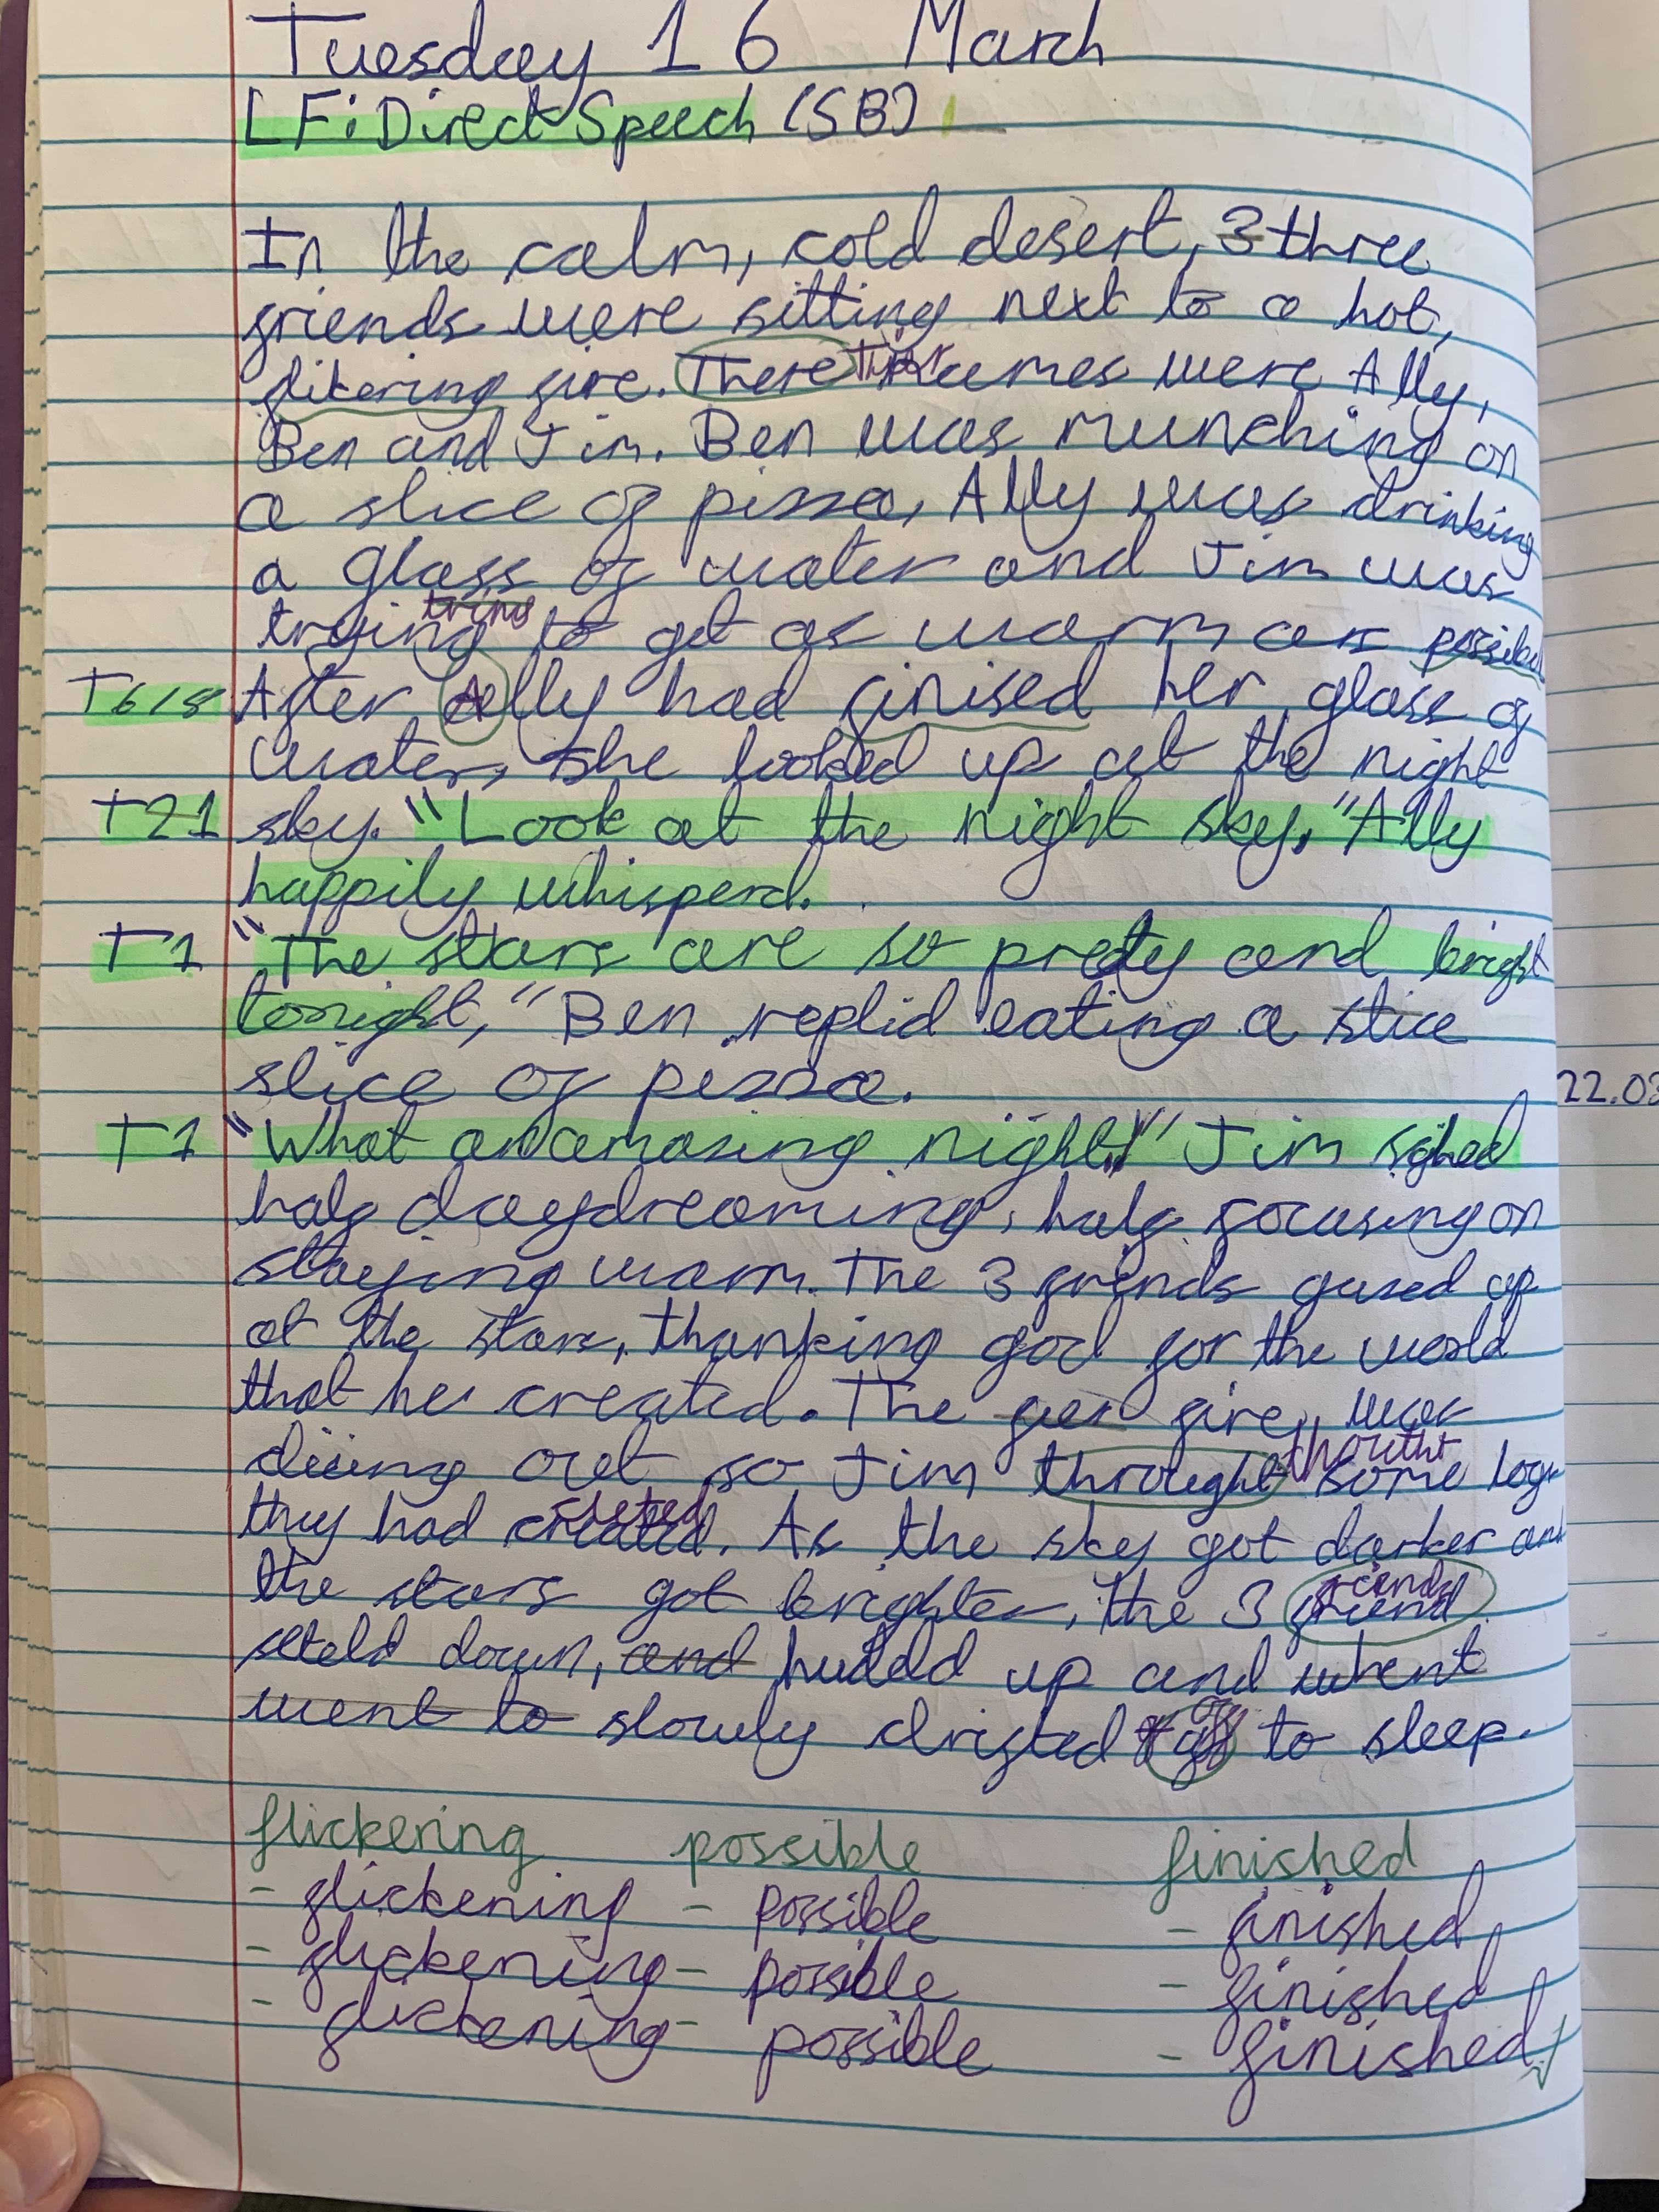 Tuesday 16 March
LF: Direct Speech (SB)
In the calm, cold desert, 3 three
friends were sitting next to a hot,
flikering fire. There Their names were Ally,
Ben and Jim. Ben was munching on
a slice of pizza, Ally was drinking
a glass of water and Jim was
trying to get as warm as
T6/8 After Ally had finised her glass of
water, she looked up at the night
T21 sky. "Look at the night sky," Ally
happily whisperd.
T1 "The stars are so prety and bright
tonight," Ben replid eating a slice
slice of pizza.
22.03
T1 "What an amazing night!" Jim sighed
half daydreaming, half focusing on
staying warm. The 3 frends gazed up
at the stars, thanking god for the world
that he created. The fire was
diing out so Jim throught some logs
they had created. As the sky got darker and
the stars got brighter, the 3 friend
seteld down, and huddld up and whent
went to slowly drifted off to sleep.
flickering possible finished
- flickering - possible - finished
- flickering - possible - finished
- flickering - possible - finished